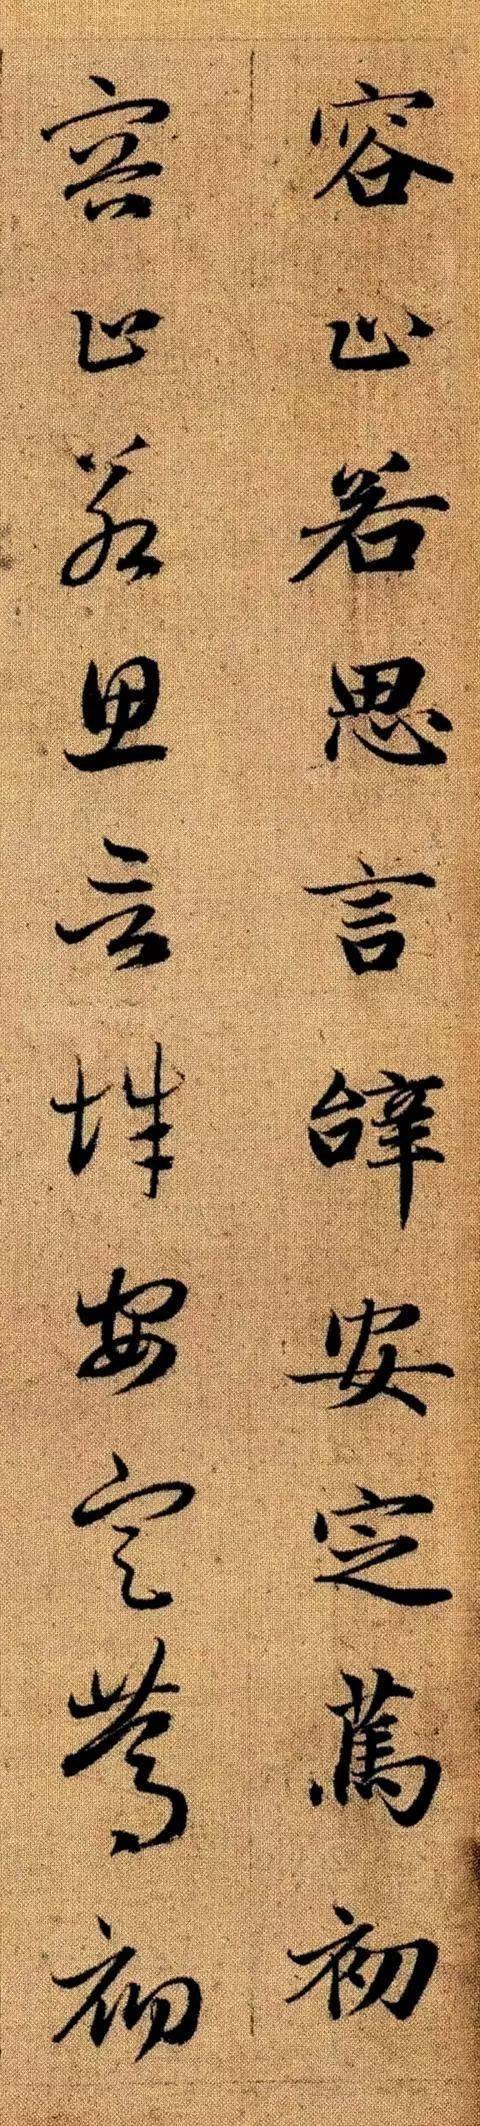 容止若思言辝安定蔿初
容止若思言辝安定蔿初